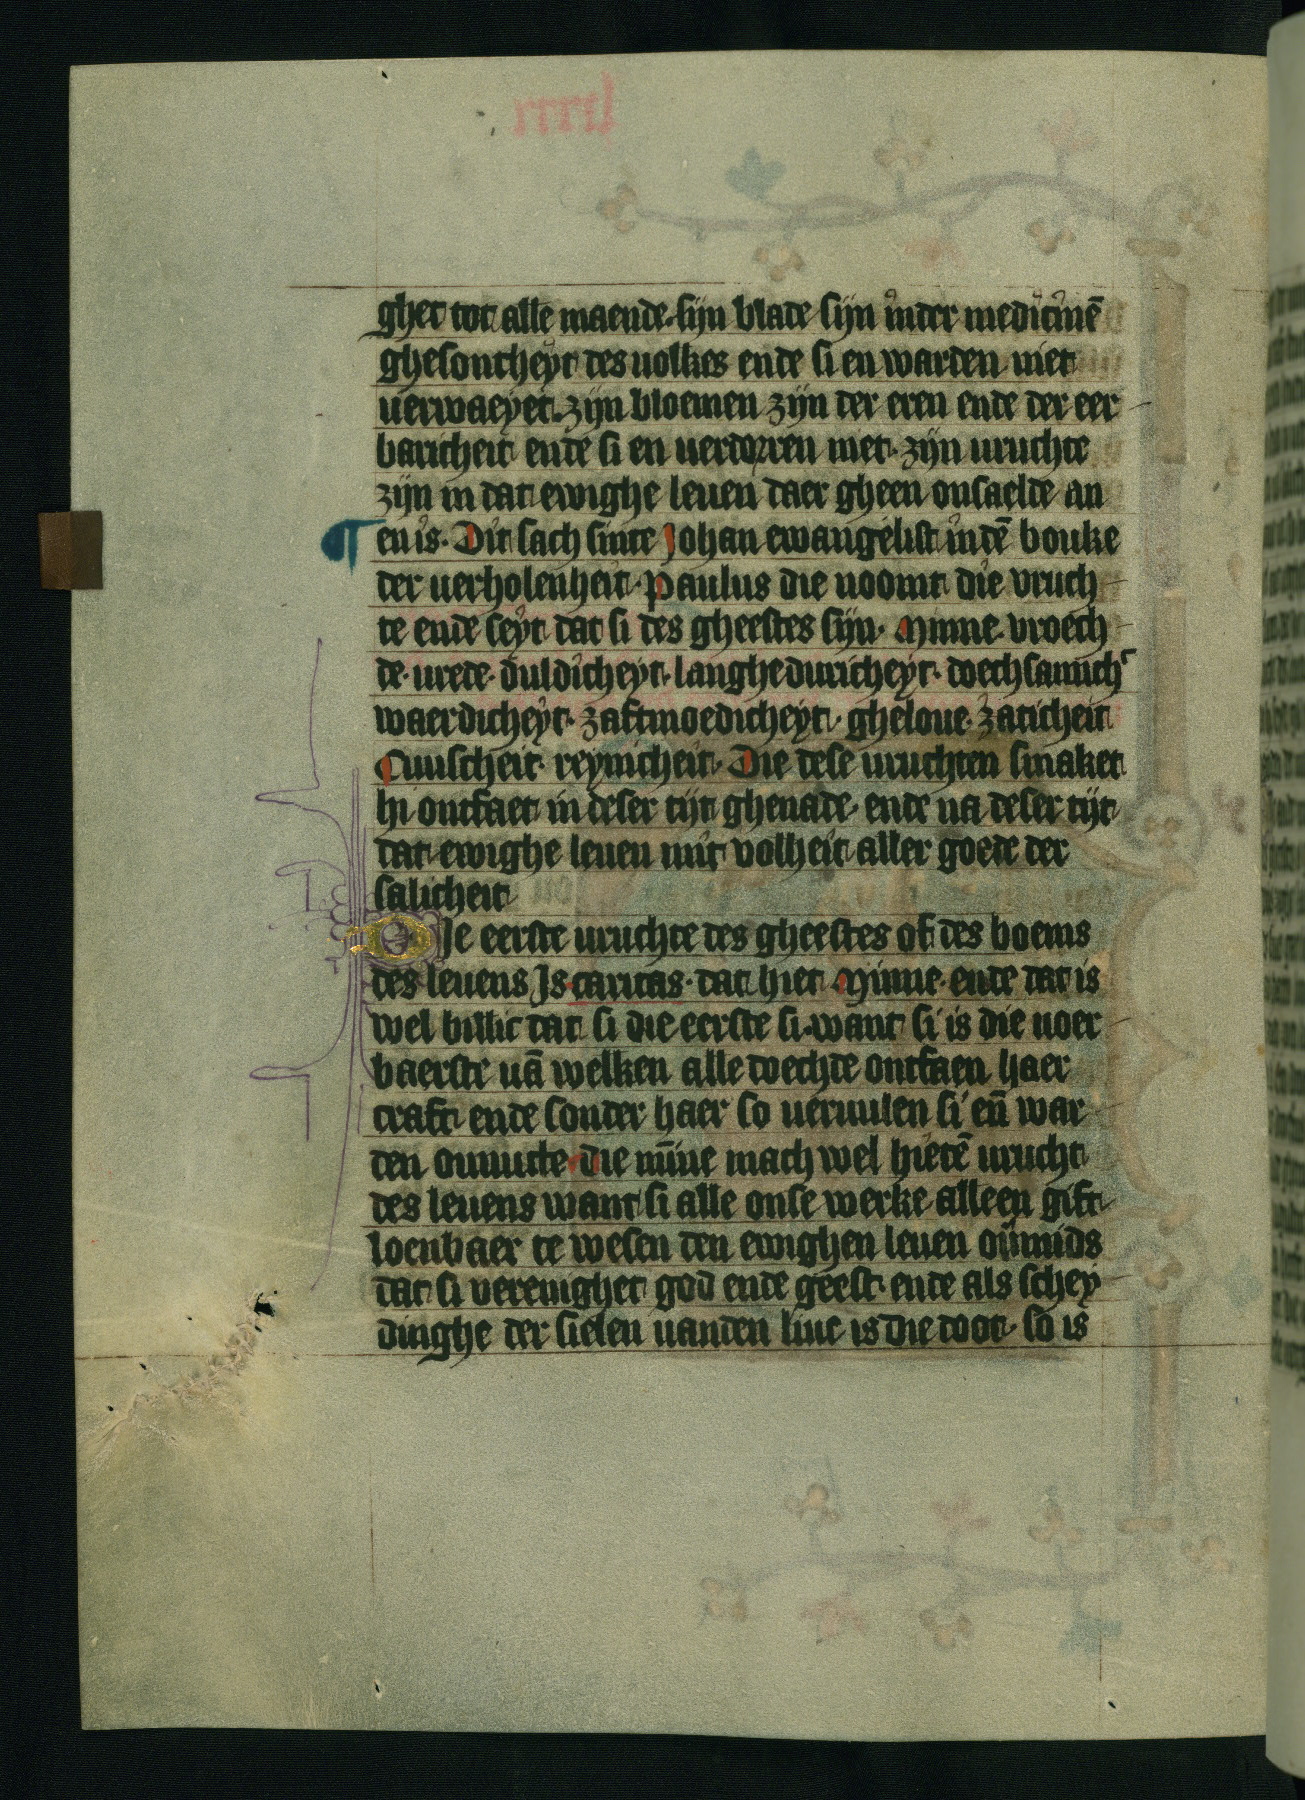 ghet tot alle maende. sijn blade sijn inder medicinē
ghesontheyt des uolkes ende si en warden niet
uerwaeyet. zijn bloemen zijn der eren ende der eer
baricheit ende si en uerdorren niet. zijn uruchte
zijn in dat ewighe leuen daer gheen onsaelde an
¶ en is. Dit sach sinte Johan ewangelist indē bouke
der uerholenheit. Paulus die noomt die vruch
te ende seyt dat si des gheestes sijn. Minne. vroech
de. urede. duldicheyt. langhe duricheyt. doechsamich
waerdicheyt. zaftmoedicheyt. gheloue. zaticheit
Cuuscheit reynicheit. Die dese uruchten smaket
hi ontfaet in deser tijt ghenade. ende na deser tijt
dat ewighe leuen mit volheit aller goede der
salicheit
Die eerste uruchte des gheestes of des boems
des leuens Is caritas. dat hiet Minne. ende dat is
wel billic dat si die eerste si. want si is die uoer
baerste uā welken alle doechde ontfaen haer
craft ende sonder haer so ueruulen si eñ war
den onnutte. die mīne mach wel hietē urucht
des leuens want si alle onse werke alleen gift
loenbaer te wesen den ewighen leuen ouimids
dat si verenighet god ende geest. ende als schey
dinghe der sielen uanden liue is die doot. so is